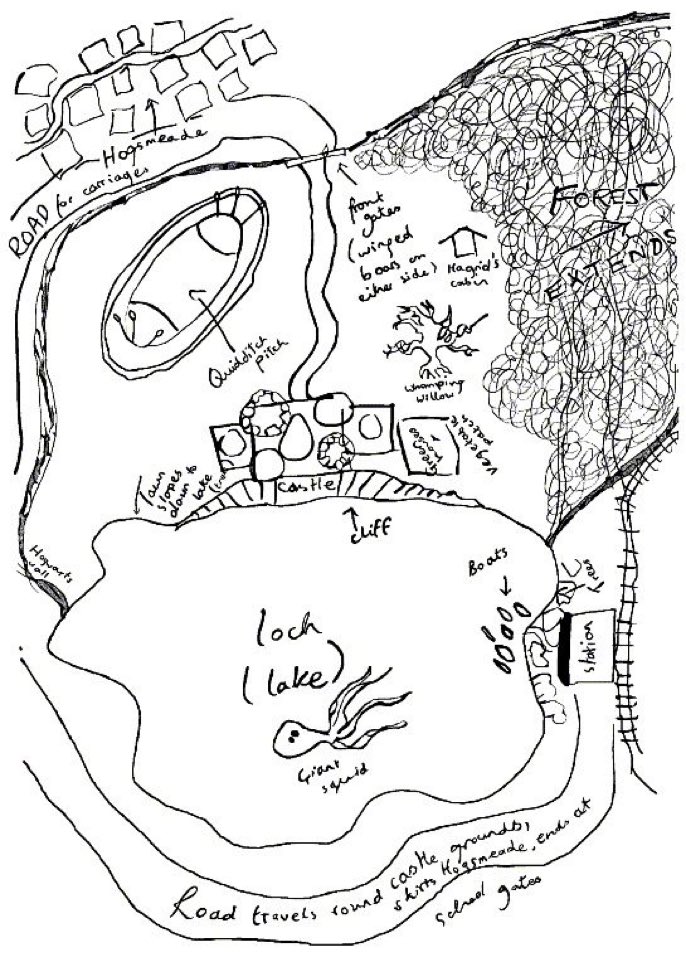 Hogsmeade
ROAD for carriages
front
gates
(winged
boars on
either side)
Hagrid's
cabin
FOREST
EXTENDS
Quidditch
pitch
whomping
willow
Greenhouses
vegetable
patch
lawn
slopes to
down
lake
castle
cliff
Hogwarts
wall
Boats
trees
station
loch
(lake)
Giant
squid
Road travels round castle grounds,
skirts Hogsmeade, ends at
school gates